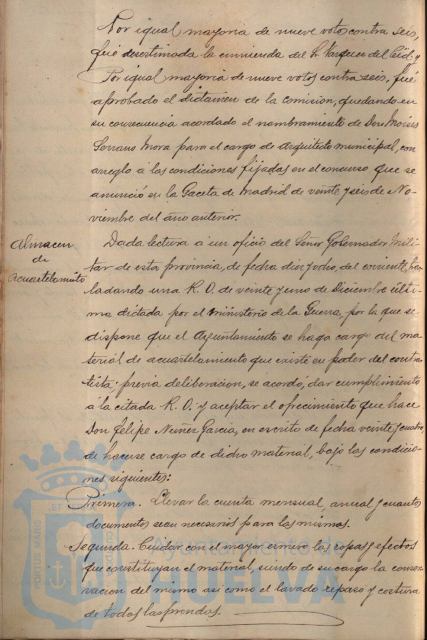 Por igual mayoria de nueve votos contra seis,
fué desestimada la enmienda del Sr. Marques del Cid y
Por igual mayoria de nueve votos contra seis, fué
aprobado el dictamen de la comision, quedando en
su consecuencia acordado el nombramiento de Don Moises
Serrano Mora para el cargo de arquitecto municipal, con
arreglo á las condiciones fijadas en el concurso que se
anunció en la Gaceta de Madrid de veinte y seis de No-
viembre del año anterior.
Almacen
de
acuartelamito
Dada lectura á un oficio del Señor Gobernador Mili-
tar de esta provincia, de fecha diez y ocho, del corriente, tras-
ladando una R. O. de veinte y uno de Diciembre últi-
mo dictada por el Ministerio de la Guerra, por la que se
dispone que el Ayuntamiento se haga cargo del ma-
terial de acuartelamiento que existe en poder del contra-
tista; previa deliberacion, se acordó, dar cumplimiento
á la citada R. O. y aceptar el ofrecimiento que hace
Don Felipe Nuñez Garcia, en escrito de fecha veinte y cuatro,
de hacerse cargo de dicho material, bajo las condicio-
nes siguientes:
Primera. Llevar la cuenta mensual, anual y cuantos
documentos sean necesarios para las mismas.
Segunda. Cuidar con el mayor esmero las ropas y efectos
que constituyan el material, siendo de su cargo la conser-
vacion del mismo asi como el lavado repaso y costura
de todas las prendas.
Ayuntamiento de
HUELVA